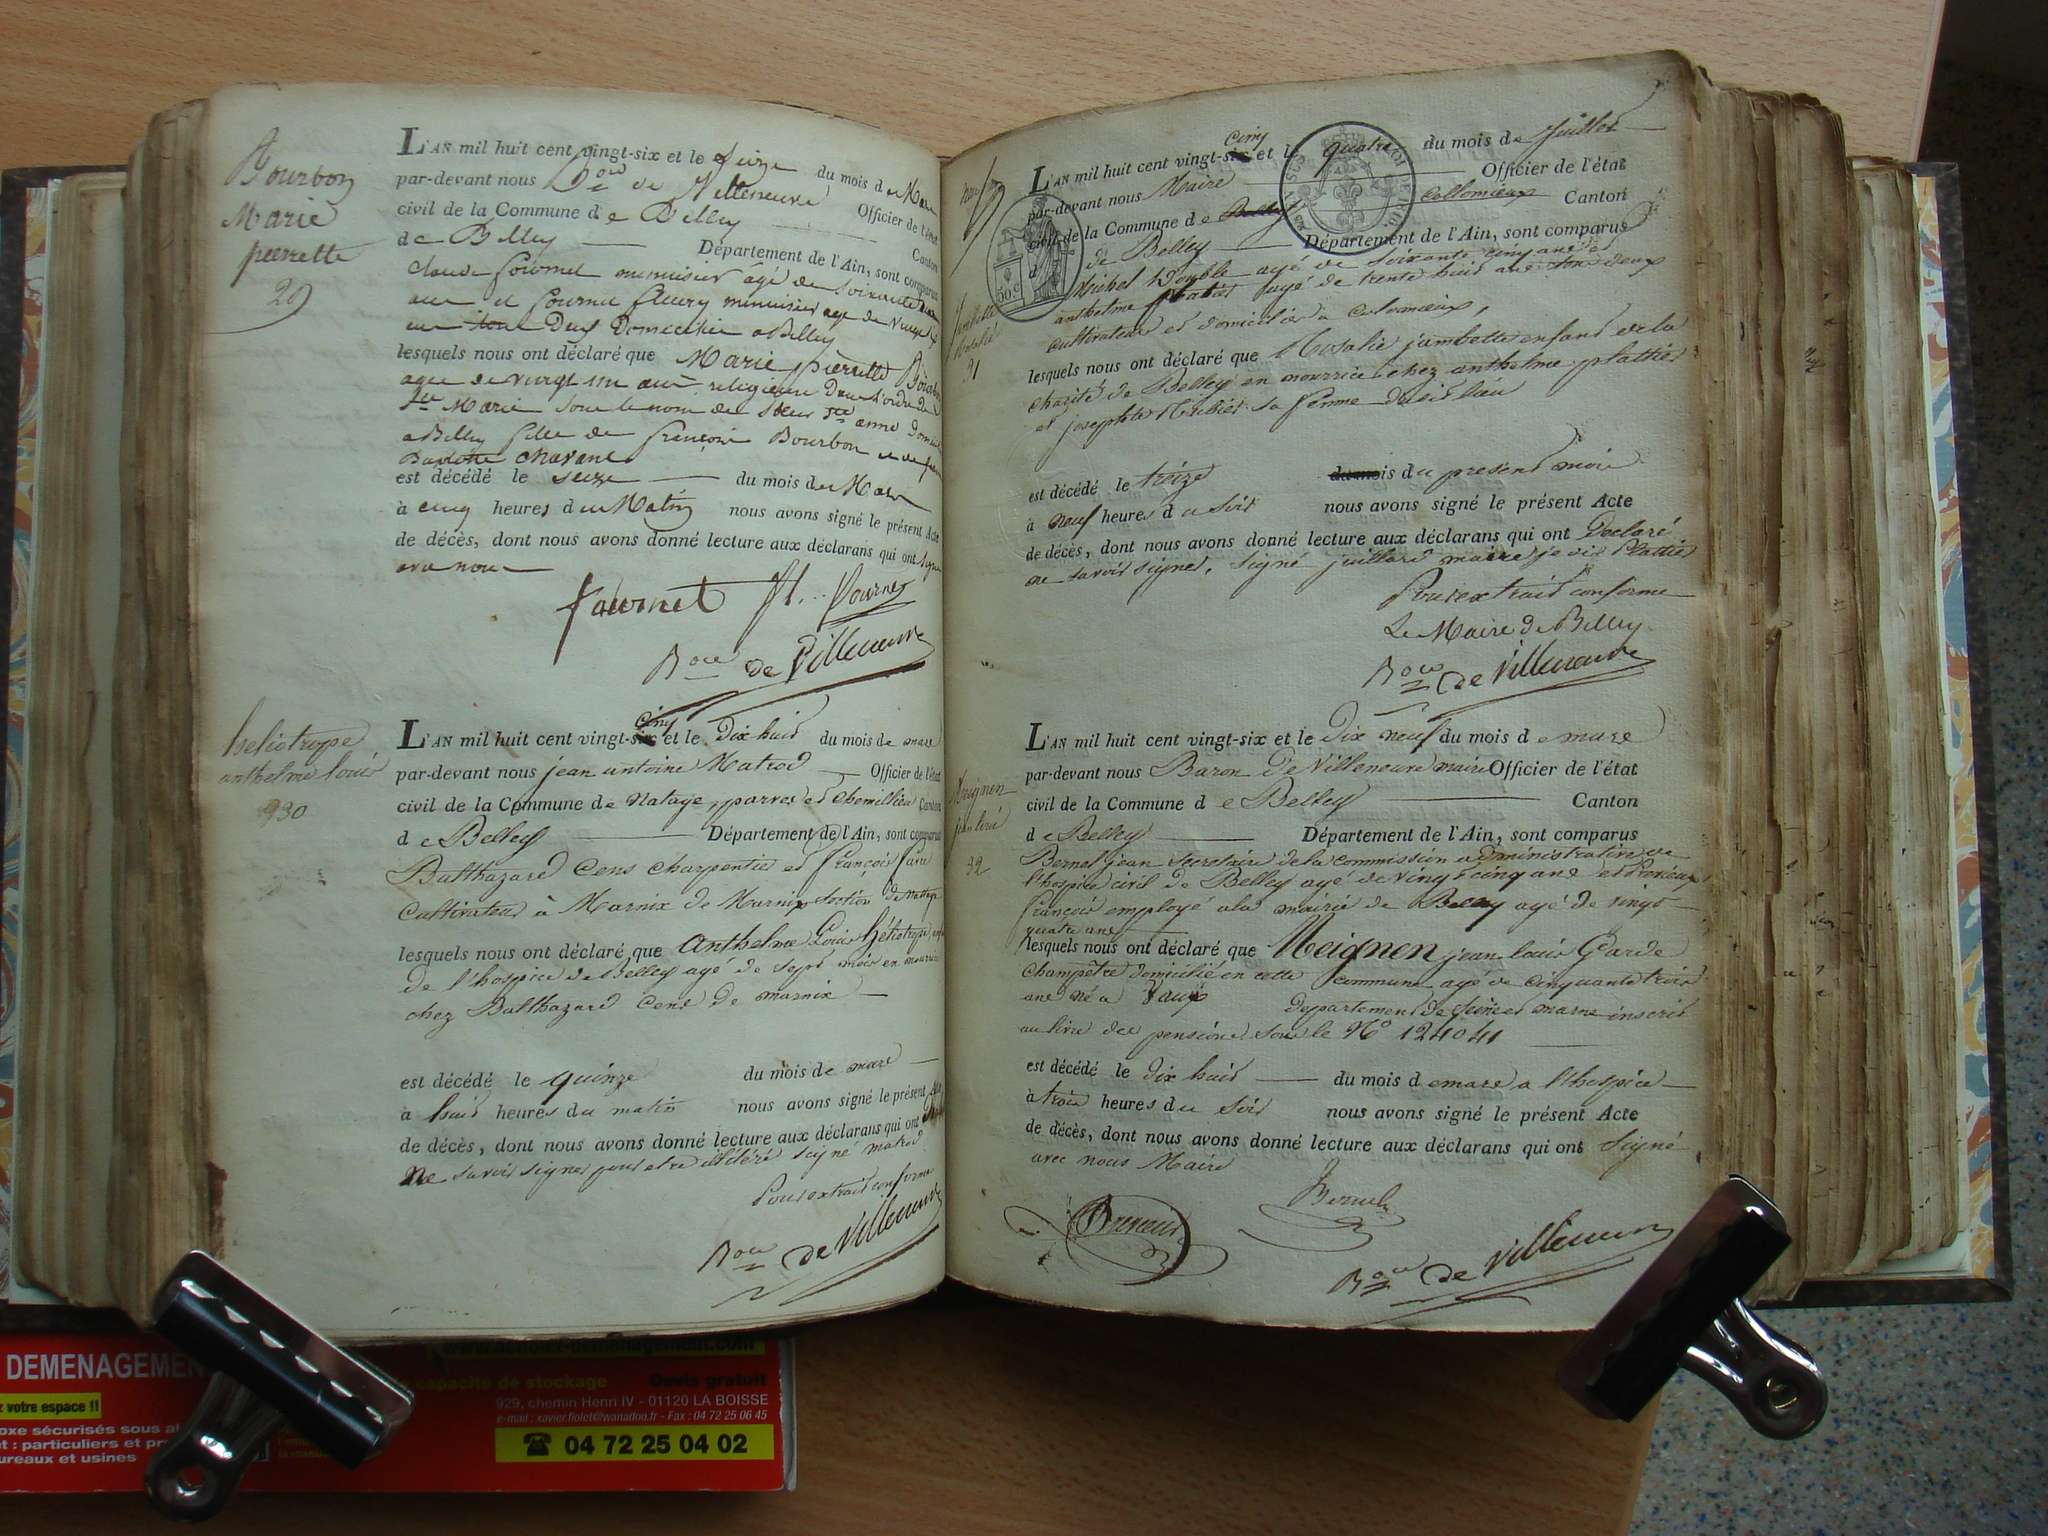 Bourbon
Marie
pierrette
29
L'AN mil huit cent vingt-six et le seize du mois de Mars
par-devant nous Bon de Villeneuve Officier de l'état
civil de la Commune de Belley Canton
de Belley Département de l'Ain, sont comparus
Claude fournet menuisier agé de soixante
ans et fournet fleury menuisier age de vingt
ans tous Deux Domiciliés a Belley
lesquels nous ont déclaré que Marie pierrette Bourbon
agee de vingt un ans religieuse Dans l'ordre de
Ste Marie sous le nom de Sœur Ste anne
a Belley fille de françois Bourbon et de
chavane
est décédé le seize du mois de Mars
à cinq heures du Matin nous avons signé le présent Acte
de décès, dont nous avons donné lecture aux déclarans qui ont signé
avec nous
fournet fl. fournet
Bon de Villeneuve
heliotrope
anthelme louis
30
L'AN mil huit cent vingt-six cinq et le Dix huit du mois de mars
par-devant nous jean antoine Matrod Officier de l'état
civil de la Commune de Natage, parves et chemillieu Canton
de Belley Département de l'Ain, sont comparus
Balthazard Cens charpentier et françois favre
Cultivateur à Marnix de Marnix section de Nattage
lesquels nous ont déclaré que Anthelme Louis héliotrope
De l'hospice de Belley agé de sept mois en nourrice
chez Balthazard Cens de marnix
est décédé le quinze du mois de mars
à huit heures du matin nous avons signé le présent Acte
de décès, dont nous avons donné lecture aux déclarans qui ont
Ne savoir signer pour etre illitéré signé matrod
Pour extrait conforme
Bon de Villeneuve
50.c
jambette
Rosalie
31
L'AN mil huit cent vingt-six cinq et le quatre du mois de Juillet
par-devant nous Maire Officier de l'état
civil de la Commune de Belley Collomieux Canton
de Belley Département de l'Ain, sont comparus
Michel Double agé de soixante cinq ans et
anthelme plattier agé de trente huit ans tous deux
cultivateurs et domiciliés a Colomieux,
lesquels nous ont déclaré que Rosalie jambette enfant de la
charité de Belley en nourrice chez anthelme plattier
et josephte sa femme dudit lieu
est décédé le treize du mois du present mois
à neuf heures du soir nous avons signé le présent Acte
de décès, dont nous avons donné lecture aux déclarans qui ont Declaré
ne savoir signer. signé juillard maire
Pour extrait conforme
Le Maire de Belley
Bon de Villeneuve
Meignen
jean louis
32
L'AN mil huit cent vingt-six et le Dix neuf du mois de mars
par-devant nous Baron De Villeneuve maire Officier de l'état
civil de la Commune de Belley Canton
de Belley Département de l'Ain, sont comparus
Bernet jean Secretaire de la commission administrative de
l'hospice civil de Belley agé de vingt cinq ans et
françois employé a la mairie de Belley agé de vingt
quatre ans
lesquels nous ont déclaré que Meignen jean louis Garde
champêtre domicilié en cette commune agé de cinquante trois
ans né a Vaux departement de seine et marne inscrit
au livre des pensions sous le No 124041
est décédé le dix huit du mois de mars a l'hospice
à trois heures du soir nous avons signé le présent Acte
de décès, dont nous avons donné lecture aux déclarans qui ont signé
avec nous Maire
Bernet
Bon de Villeneuve
DEMENAGEMEN
z votre espace !!
oxe sécurisés sous al
t : particuliers et pr
ureaux et usines
capacité de stockage Devis gratuit
929, chemin Henri IV - 01120 LA BOISSE
e-mail : xavier.fiolet@wanadoo.fr - Fax : 04 72 25 06 45
☎ 04 72 25 04 02